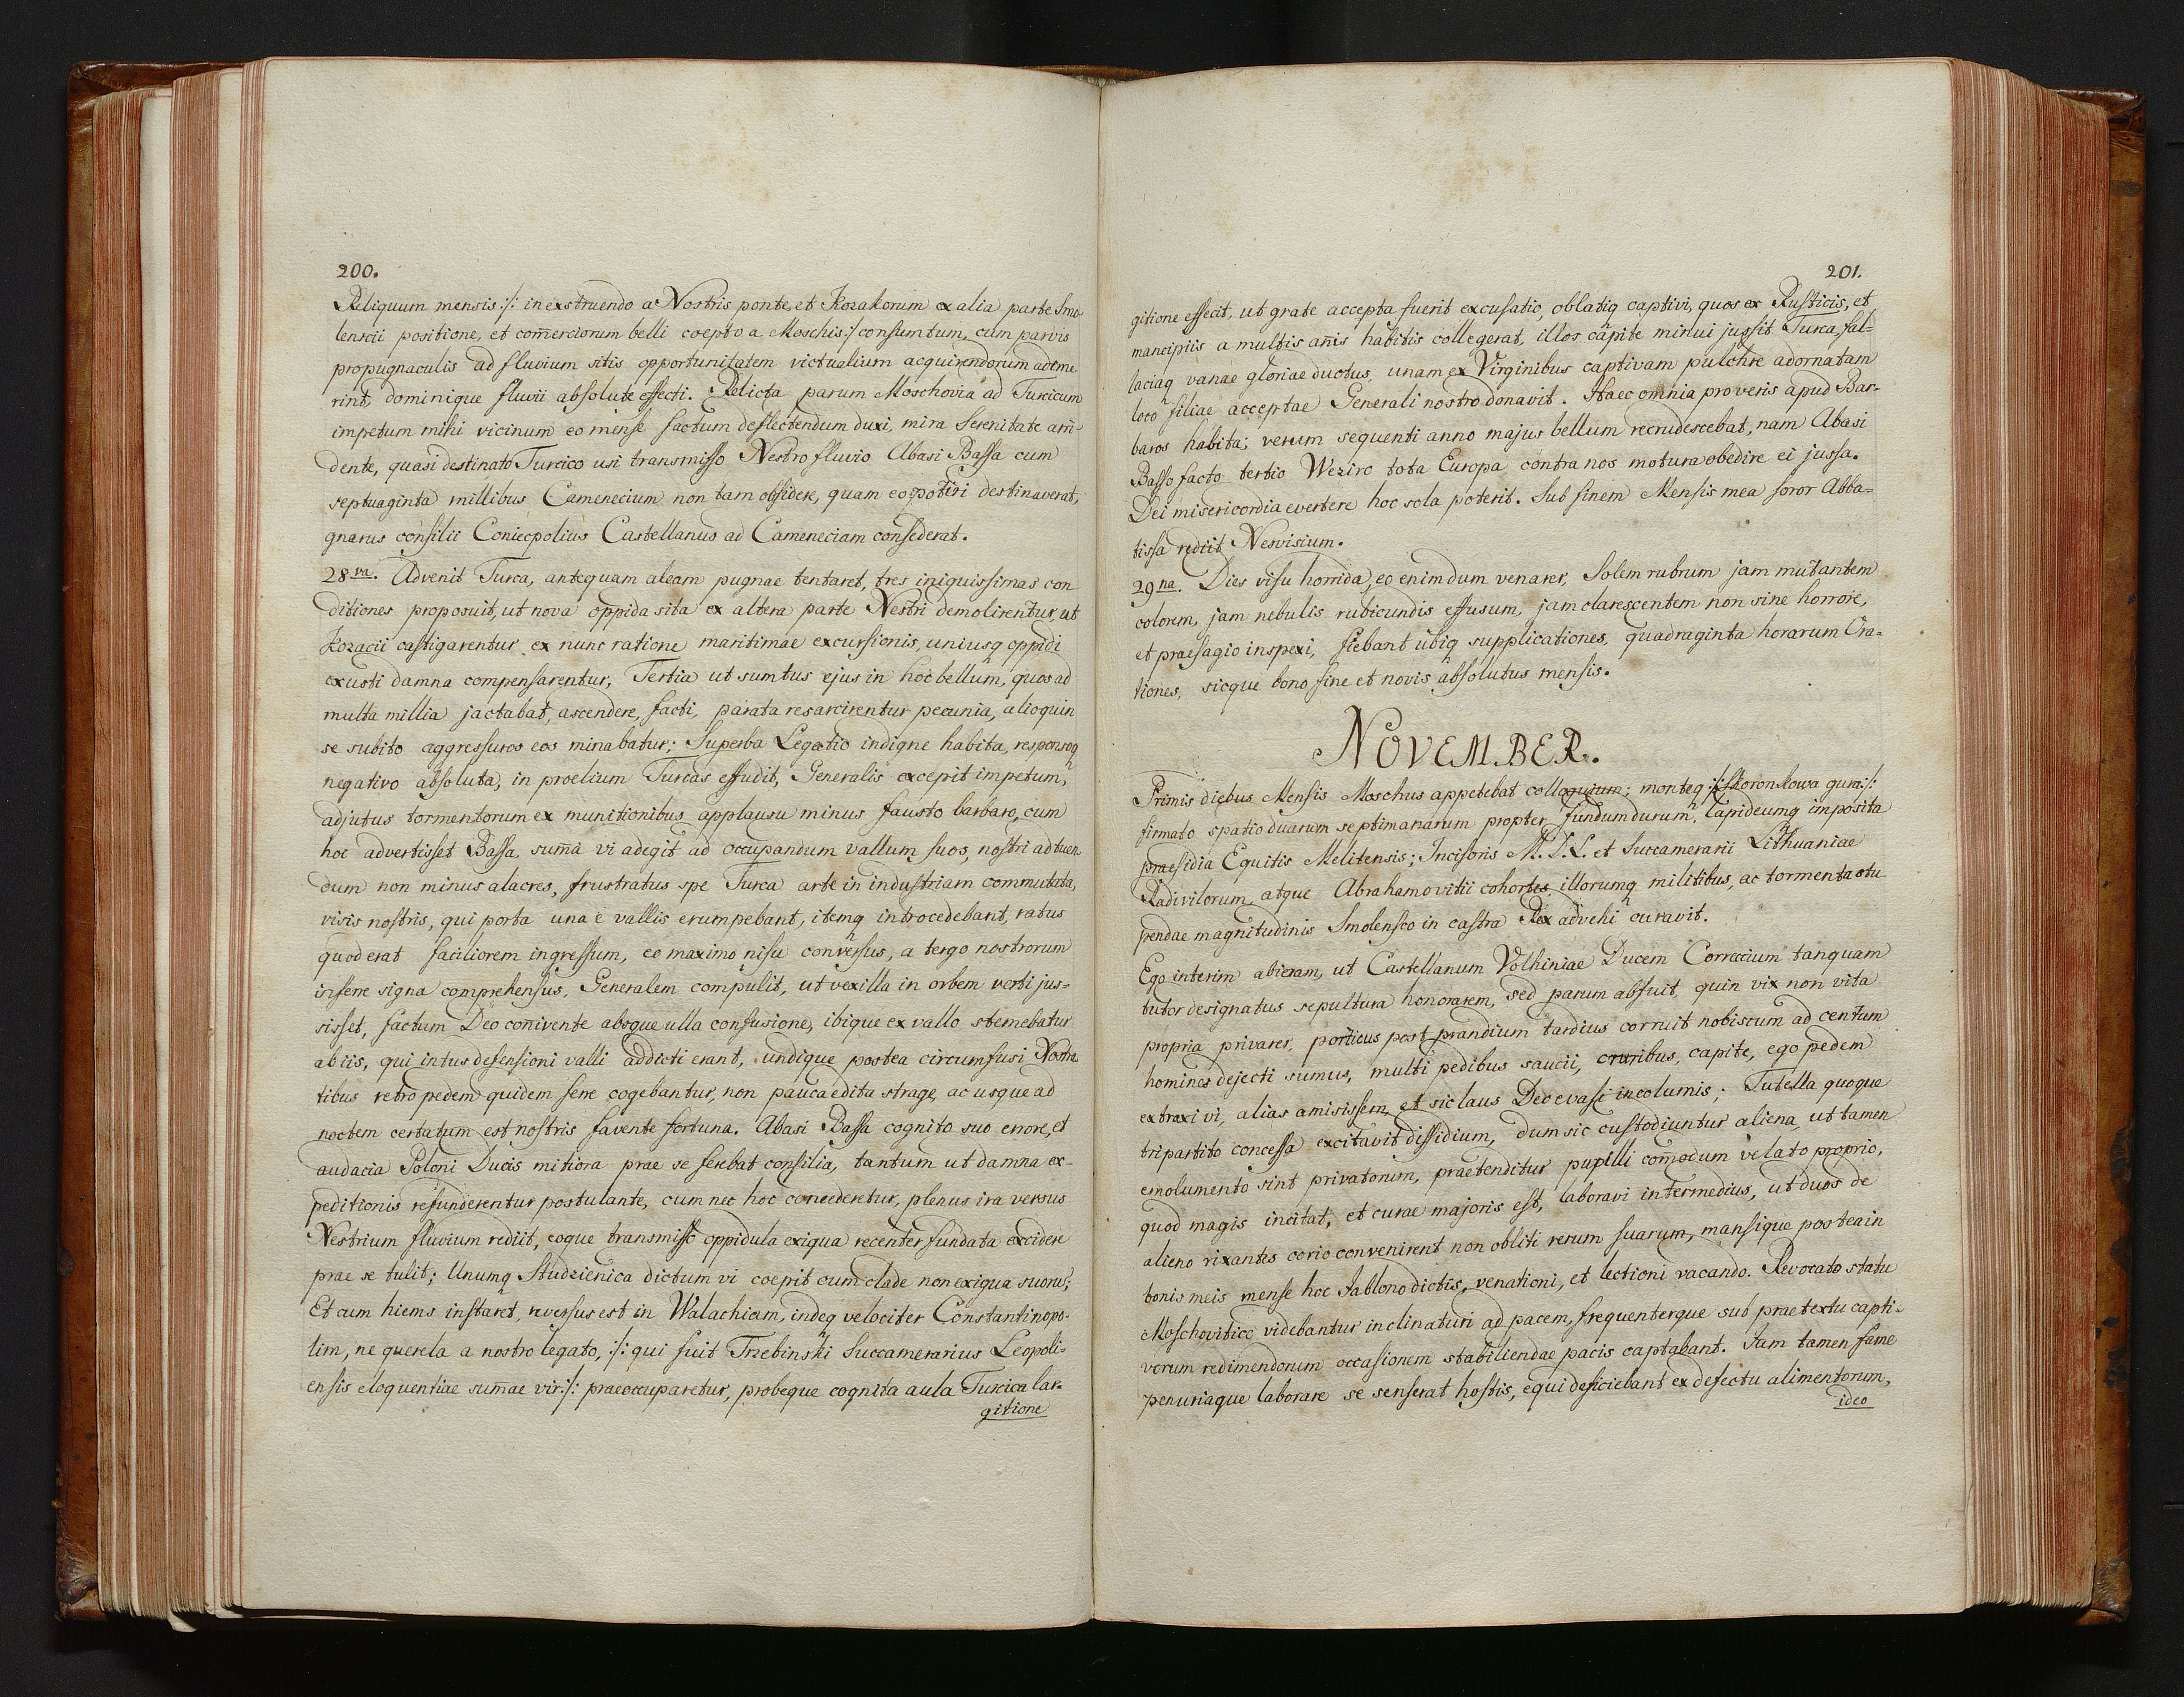 200.
Reliquum mensis :/: in exstruendo a Nostris ponte, et Kozakorum ex alia parte Smo
lenscii positione, et com̄erciorum belli coepto a Moschis :/ consumtum, cum parvis
propugnaculis ad fluvium sitis opportunitatem victualium acquirendorum ademe
rint, dominique fluvii absolute effecti. Relicta parum Moschovia ad Turcicum
impetum mihi vicinum eo mense factum deflectendum duxi, mira Serenitate arri-
dente, quasi destinato Turcico usi transmisso Nestro fluvio Abasi Bassa cum
septuaginta millibus Camenecium non tam obsidere, quam eo potiri destinaverat,
gnarus consilii Coniecpolius Castellanus ad Cameneciam consederat.
28va. Advenit Turca, antequam aleam pugnae tentaret, tres iniquissimas con
ditiones proposuit, ut nova oppida sita ex altera parte Nestri demolirentur, ut
Kozacii castigarentur ex nunc ratione maritimae excursionis, uniusq oppidi
exusti damna compensarentur, Tertia ut sumtus ejus in hoc bellum, quos ad
multa millia jactabat, ascendere, facti, parata resarcirentur pecunia, alioquin
se subito aggressuros eos minabatur; Superba Legatio indigne habita, responsoq
negativo absoluta, in proelium Turcas effudit, Generalis excepit impetum,
adjutus tormentorum ex munitionibus applausu minus fausto barbaro, cum
hoc advertisset Bassa, sum̄a vi adegit ad occupandum vallum suos, nostri ad tuen
dum non minus alacres, frustratus spe Turca arte in industriam commutata,
visis nostris, qui porta una e vallis erumpebant, itemq introcedebant, ratus
quod erat faciliorem ingressum, eo maximo nisu conversus, a tergo nostrorum
inferre signa comprehensus, Generalem compulit, ut vexilla in orbem verti jus=
sisset, factum Deo conivente absque ulla confusione, ibique ex vallo sternebatur
ab iis, qui intus defensioni valli addicti erant, undique postea circumfusi Nostra
tibus retro pedem quidem ferre cogebantur, non pauca edita strage, ac usque ad
noctem certatum est nostris favente fortuna. Abasi Bassa cognito suo errore, et
audacia Poloni Ducis mitiora prae se ferebat consilia, tantum ut damna ex-
peditionis refunderentur postulante, cum nec hoc concederetur, plenus ira versus
Nestrium fluvium rediit, eoque transmisso oppidula exigua recenter fundata excidere
prae se tulit; Unumq Studzienica dictum vi coepit cum clade non exigua suorū;
Et cum hiems instaret, reversus est in Walachiam, indeq velociter Constantinopo-
lim, ne querela a nostro legato, :/: qui fuit Trzebinski Succamerarius Leopoli=
ensis eloquentiae sum̄ae vir :/: praeoccuparetur, probeque cognita aula Turcica lar=
gitione
201.
gitione effecit, ut grate accepta fuerit excusatio, oblatiq captivi, quos ex Rusticis, et
mancipiis a multis an̄is habitis collegerat, illos capite minui jussit Turca, fal=
laciaq vanae gloriae ductus, unam ex Virginibus captivam pulchre adornatam
loco filiae acceptae Generali nostro donavit. Haec omnia pro veris apud Bar-
baros habita; verum sequenti anno majus bellum recrudescebat, nam Abasi
Basso facto tertio Weziro tota Europa contra nos motura obedire ei jussa.
Dei misericordia evertere hoc sola poterit. Sub finem Mensis mea soror Abba=
tissa rediit Nesvisium.
29na. Dies visu horrida, eo enim dum venarer, Solem rubrum jam mutantem
colorem, jam nebulis rubicundis effusum, jam clarescentem non sine horrore,
et praesagio inspexi, fiebant ubiq supplicationes, quadraginta horarum Ora=
tiones, sicque bono fine et novis absolutus mensis.
NOVEMBER.
Primis diebus Mensis Moschus appetebat colloquium; monteq :/: Skoronkowa gura :/:
firmato spatio duarum septimanarum propter fundum durum, lapideumq imposita
praesidia Equitis Melitensis; Incisoris M. D. L. et Succamerarii Lithuaniae
Radivilorum, atque Abrahamovitii cohortes illorumq militibus, ac tormenta stu
pendae magnitudinis Smolensco in castra Rex advehi curavit.
Ego interim abieram, ut Castellanum Volhiniae Ducem Correcium tanquam
tutor designatus sepultura honorarem, sed parum absuit, quin vix non vita
propria privarer, porticus post prandium tardius corruit nobiscum ad centum
homines dejecti sumus, multi pedibus saucii, cruribus, capite, ego pedem
extraxi vi, alias amisissem, et sic laus Deo evasi incolumis; Tutella quoque
tripartito concessa excitavit dissidium, dum sic custodiuntur aliena, ut tamen
emolumento sint privatorum, praetenditur pupilli com̄odum velato proprio,
quod magis incitat, et curae majoris est, laboravi intermedius, ut duos de
alieno rixantes corio convenirent non obliti rerum suarum, mansique postea in
bonis meis mense hoc Jablono dictis, venationi, et lectioni vacando. Revocato statu
Moschovitico videbantur inclinaturi ad pacem, frequenterque sub praetextu capti-
vorum redimendorum occasionem stabiliendae pacis captabant. Jam tamen fame
penuriaque laborare se senserat hostis, equi deficiebant ex defectu alimentorum,
ideo